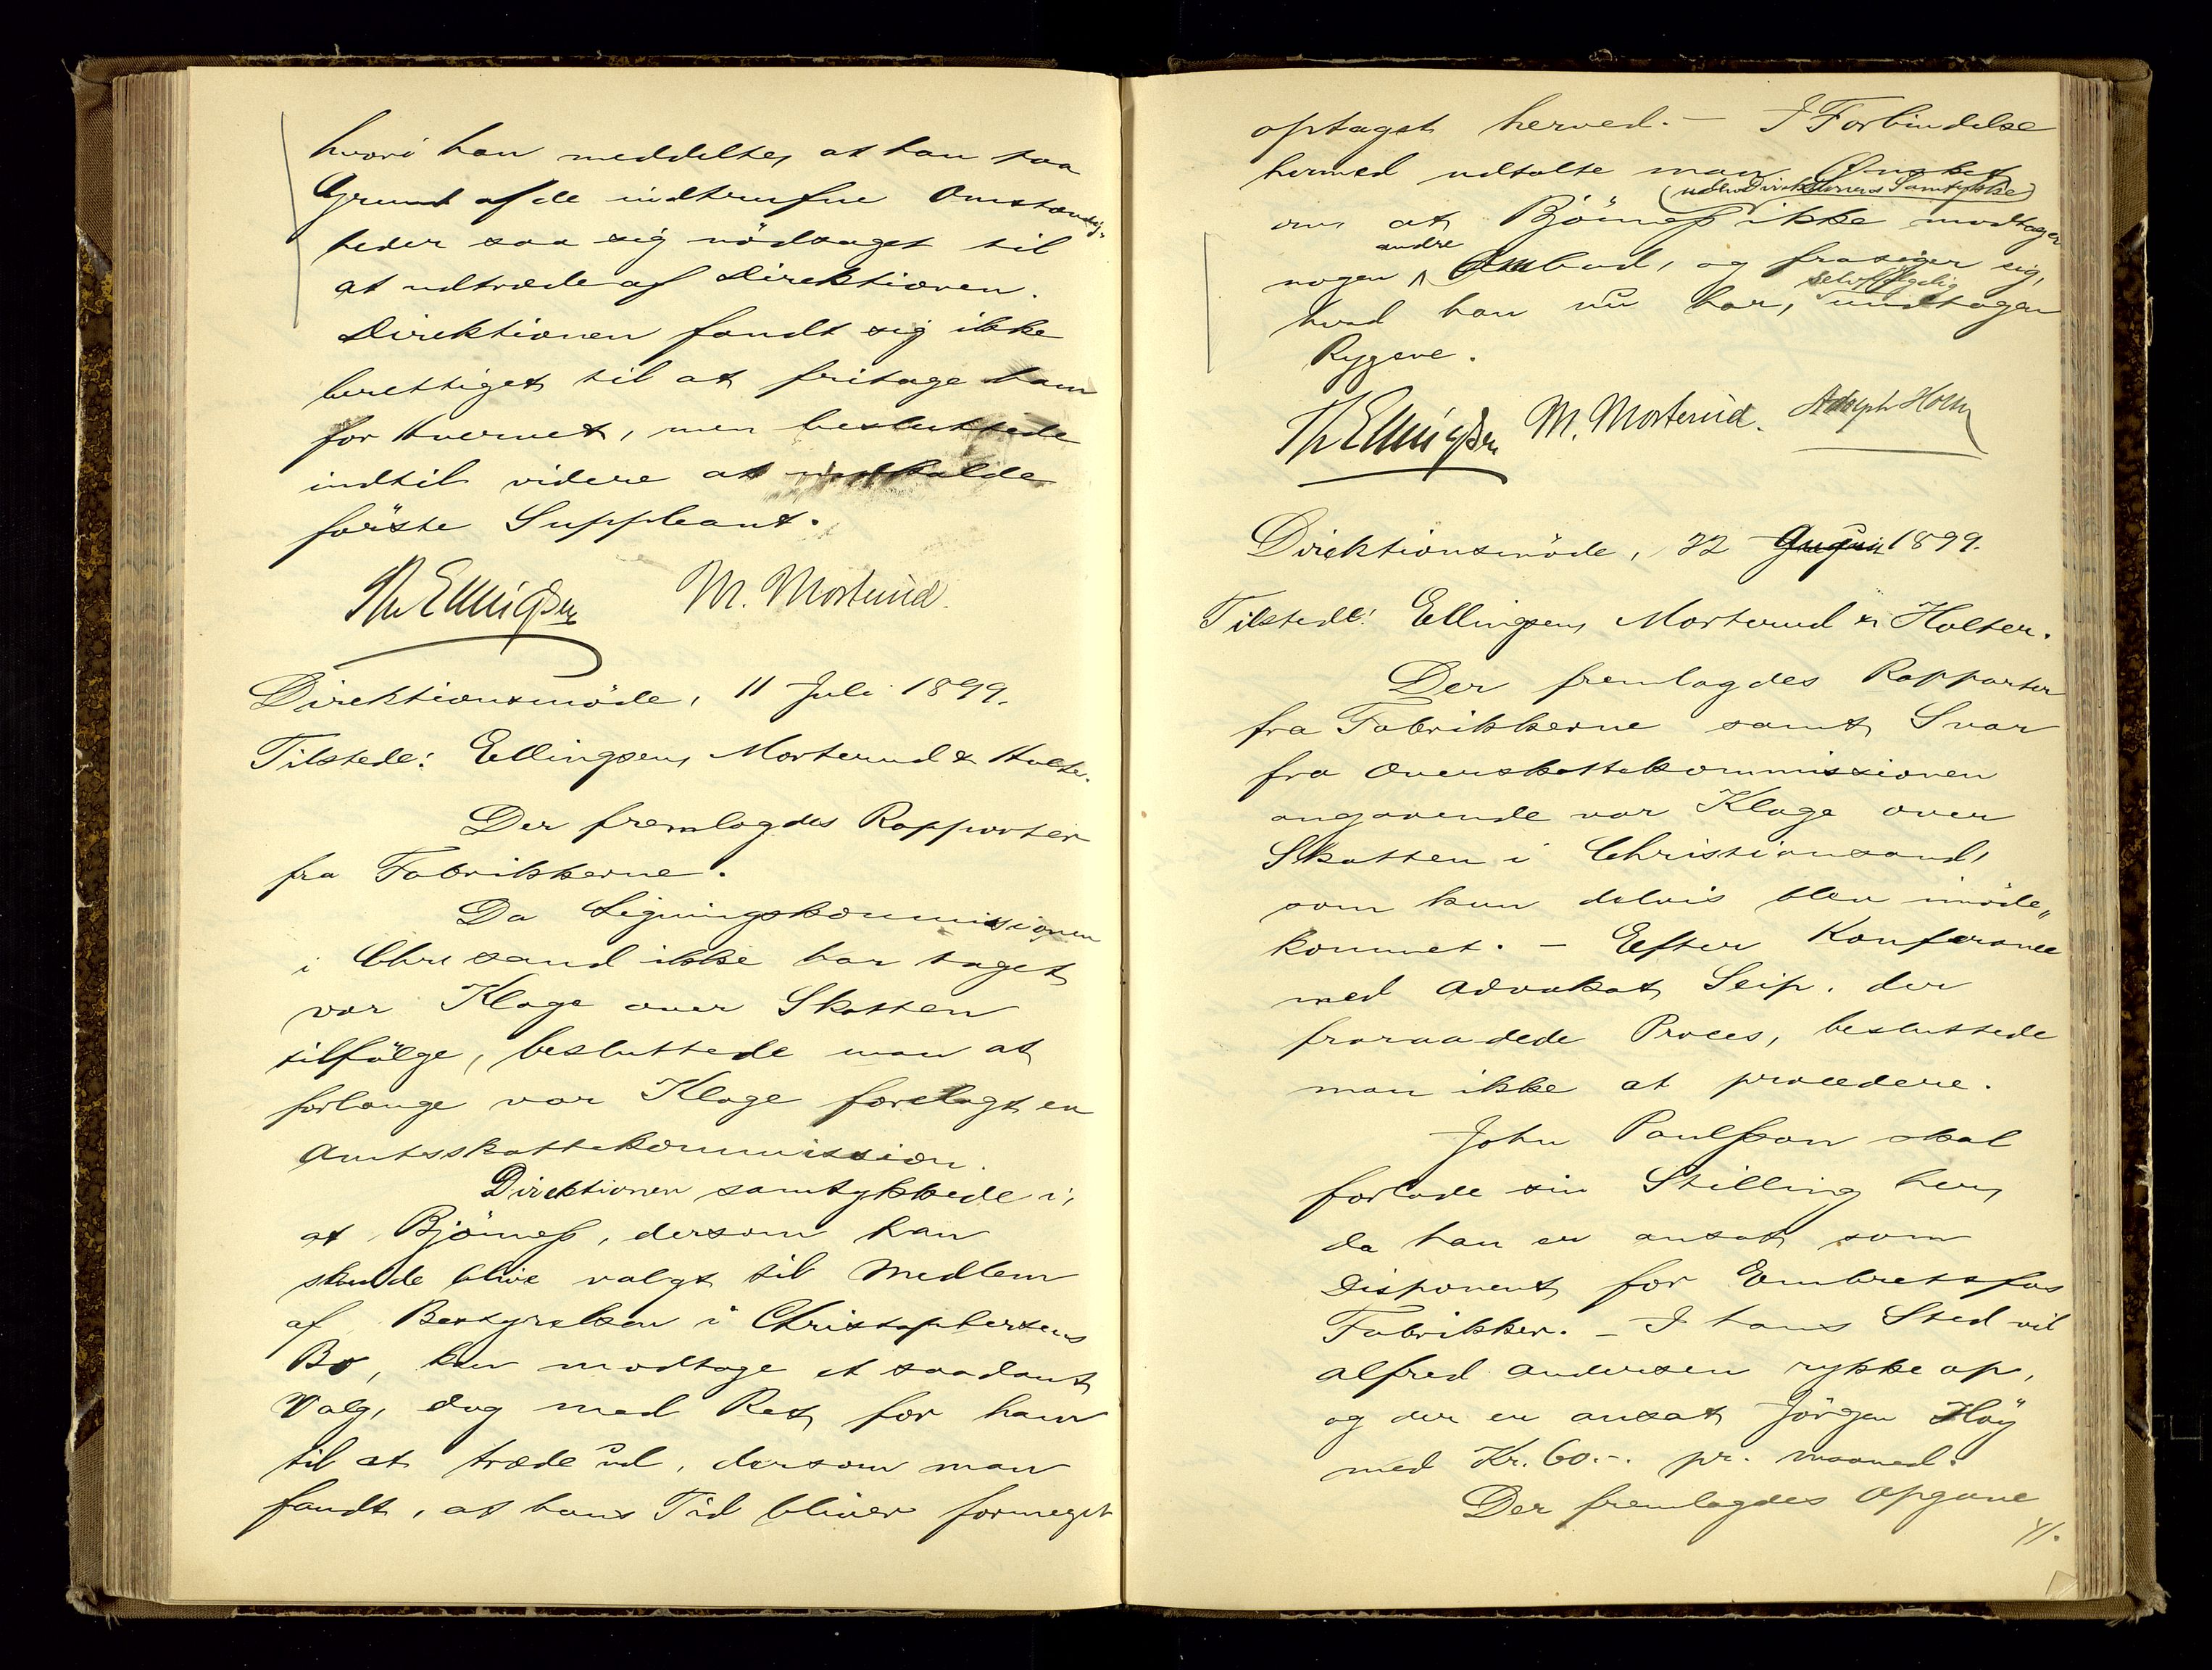 hvori han meddelte, at han paa
Grund af de indtrufne Omstændig-
heder saa sig nödsaget til
at udtræde af Direktionen.
Direktionen fandt sig ikke
berettiget til at fritage ham
for Hvervet, men besluttede
indtil videre at indkalde
förste Suppleant.
Th Ellingsen M. Mosterud.
Direktionsmöde, 11 Juli 1899.
Tilstede: Ellingsen, Mosterud & Holter.
Der fremlagdes Rapporter
fra Fabrikkerne.
Da Ligningskommissionen
i Chrsand ikke har taget
vor Klage over Skatten
tilfölge, besluttede man at
forlange vor Klage forelagt en
Amtsskattekommission.
Direktionen samtykkede i,
at Björness, dersom han
skulde blive valgt til Medlem
af Bestyrelsen i Christophersens
Bo, kan modtage et saadant
Valg, dog med Ret for ham
til at træde ud, dersom man
fandt, at hans Tid bliver formeget
optaget herved. – I Forbindelse
hermed udtalte man Ønsket
(uden Direktionens Samtykke)
om at Björness ikke modtager
andre
nogen Ombud, og frasiger sig,
selvfölgelig
hvad han nu har, undtagen
Rygene.
Th Ellingsen M. Mosterud. Adolph Holm
Direktionsmöde, 22 August 1899.
Tilstede: Ellingsen, Mosterud & Holter.
Der fremlagdes Rapporter
fra Fabrikkerne samt Svar
fra Overskattekommissionen
angaaende vor Klage over
Skatten i Christiansand,
som kun delvis blev imöde„
kommet. – Efter Konferance
med Advokat Seip, der
fraraadede Proces, besluttede
man ikke at procedere.
John Paulsson skal
forlade sin Stilling her,
da han er ansat som
Disponent for Embretsfos
Fabrikker. – I hans Sted vil
Alfred Andersen rykke op,
og der er ansat Jörgen Höy
med Kr. 60.-. pr. Maaned.
Der fremlagdes Opgave
./.